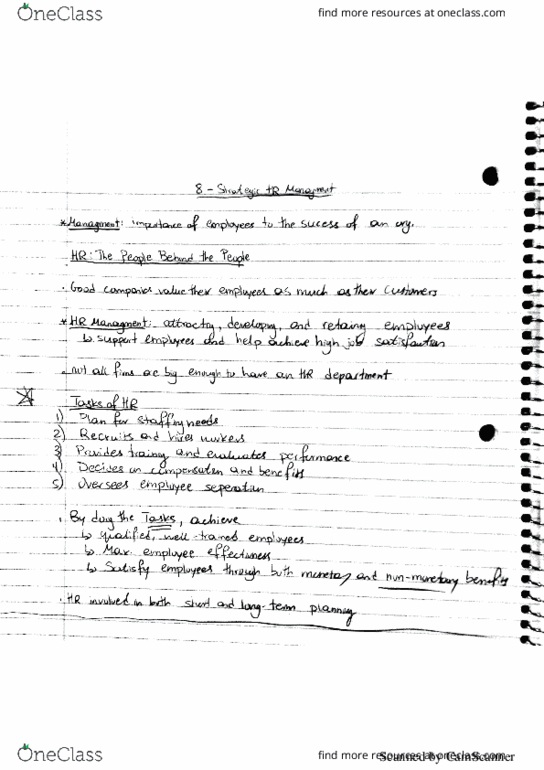 OneClass
find more resources at oneclass.com
8 - Strategic HR Managment
* Managment: importance of employees to the sucess of an org.
HR: The People Behind the People
· Good companies value their employees as much as their customers
* HR Managment: attracting, developing, and retaining employees
↳ support employees and help achieve high job satisfaction
- not all firms are big enough to have an HR department
Tasks of HR
1) Plan for staffing needs
2) Recruits and hires workers
3) Provides training and evaluates performance
4) Decides on compensation and benefits
5) Oversees employee seperation
· By doing the Tasks, achieve
↳ Qualified, well-trained employees
↳ Max. employee effectiveness
↳ Satisfy employees through both monetary and non-monetary benefits
· HR involved in both short and long-term planning
OneClass
find more resources at oneclass.com
Scanned by CamScanner